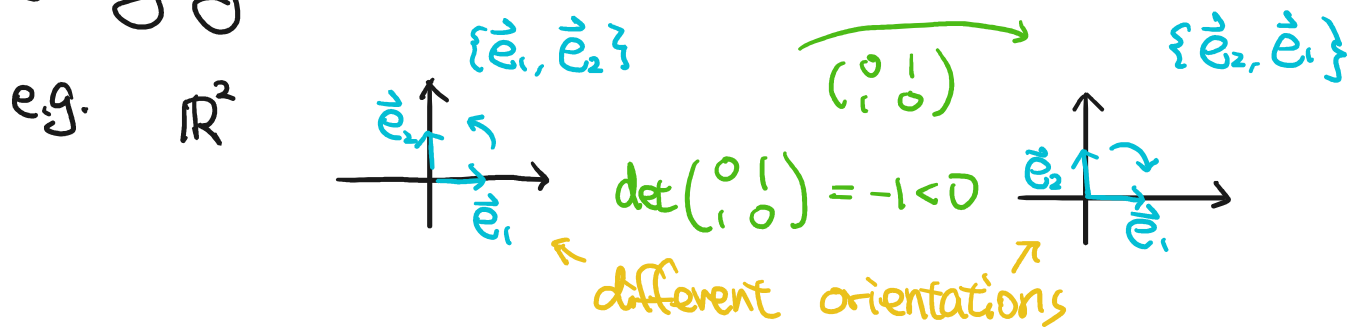 {e⃗₁, e⃗₂} (0 1; 1 0) {e⃗₂, e⃗₁}
e.g. ℝ²
e⃗₂ e⃗₁ det(0 1; 1 0) = -1 < 0 e⃗₂ e⃗₁
different orientations